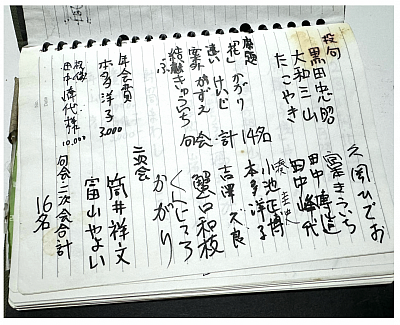 投句
黒田忠昭
大和三山
たこやき
兼題
「花」かがり
遠い けいじ
案外 かずえ
結ぶ きゅういち
年会費
本多洋子 3,000
田中峰代様 10,000
久岡ひでお
きういち
田中博造
田中峰代
湊 圭史
小池正博
本多洋子
吉澤久良
句会 計 14名
蟹口和枝
くんじろう
かがり
二次会
筒井祥文
富山やよい
句会・二次会合計
16名